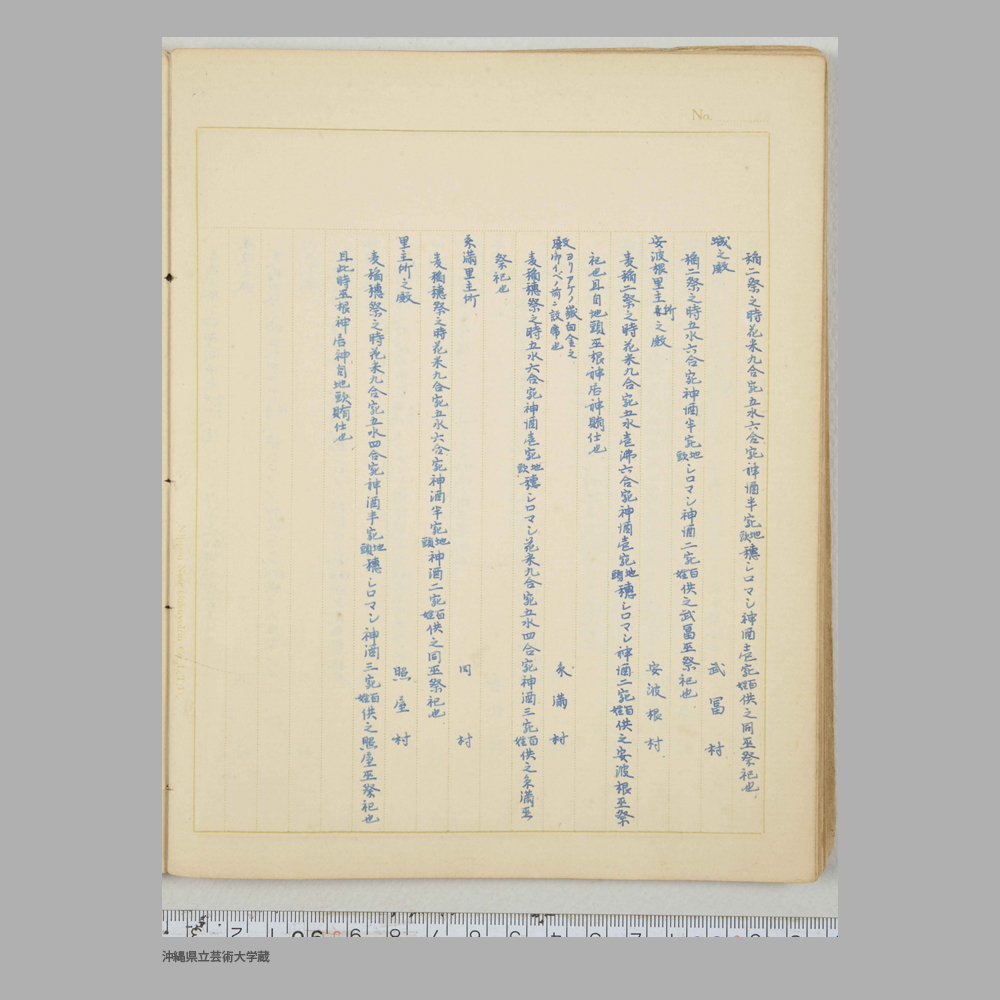 No.
稲二祭之時花米九合宛五水六合宛神酒半宛地頭穂シロマシ神酒壱宛百姓供之同巫祭祀也
城之殿 武冨村
稲二祭之時五水六合宛神酒半宛地頭シロマシ神酒二宛百姓供之武冨巫祭祀也
安波根里主所之殿 安波根村
麦稲二祭之時花米九合宛五水壱沸六合宛神酒壱宛地頭穂シロマシ神酒二宛百姓供之安波根巫祭
祀也且自地頭巫根神居神賄仕也
殿ヨリアケノ嶽白金之御イベノ前ニ設席也 糸満村
麦稲穂祭之時五水六合宛神酒壱宛地頭穂シロマシ花米九合宛五水四合宛神酒三宛百姓供之糸満巫
祭祀也
糸満里主所 同村
麦稲穂祭之時花米九合宛五水六合宛神酒半宛地頭神酒二宛百姓供之同巫祭祀也
里主所之殿 照屋村
麦稲穂祭之時花米九合宛五水四合宛神酒半宛地頭穂シロマシ神酒三宛百姓供之照屋巫祭祀也
且此時巫根神居神自地頭賄仕也
沖縄県立芸術大学蔵